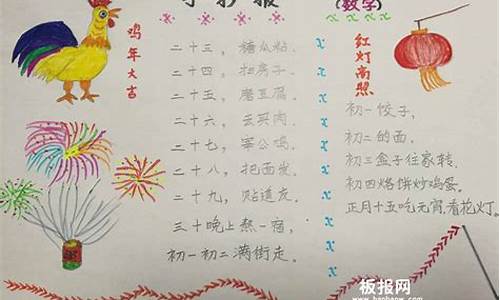 手抄报
(数学)
鸡年大吉
二十三，糖瓜粘.
二十四，扫房子.
二十五，磨豆腐.
二十六，去买肉.
二十七，宰公鸡.
二十八，把面发.
二十九，贴道友.
三十晚上熬一宿，
初一初二满街走。
红灯高照
初一饺子，
初二的面，
初三盒子往家转，
初四烙饼炒鸡蛋。
正月十五吃元宵，看花灯。
板报网